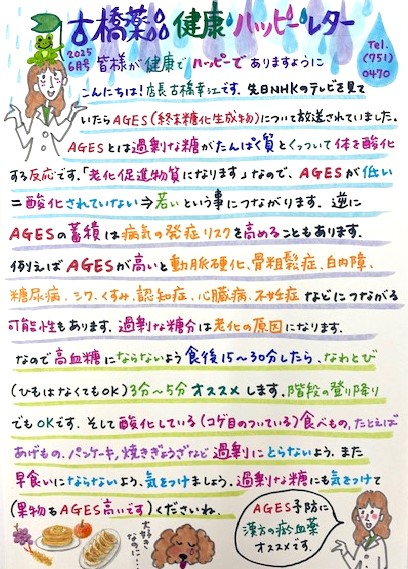 古橋薬品 健康ハッピーレター
2025
6月号
皆様が健康でハッピーでありますように
Tel.
(751)
0470
こんにちは!店長古橋幸江です。先日NHKのテレビを見て
いたらAGES(終末糖化生成物)について放送されていました。
AGESとは過剰な糖がたんぱく質とくっついて体を酸化
する反応です。「老化促進物質になります」なので、AGESが低い
=酸化されていない⇒若いという事につながります。逆に
AGESの蓄積は病気の発症リスクを高めることもあります。
例えばAGESが高いと動脈硬化、骨粗鬆症、白内障、
糖尿病、シワ、くすみ、認知症、心臓病、不妊症などにつながる
可能性もあります。過剰な糖分は老化の原因になります。
なので高血糖にならないよう食後15~30分したら、なわとび
(ひもはなくてもOK)3分~5分オススメします。階段の登り降り
でもOKです。そして酸化している(コゲ目のついている)食べもの、たとえば
あげもの、パンケーキ、焼きぎょうざなど過剰にとらないよう、また
早食いにならないよう、気をつけましょう。過剰な糖にも気をつけて
(果物もAGES高いです)くださいね。
大好き
なのに…
AGES予防に
漢方の瘀血薬
オススメです。